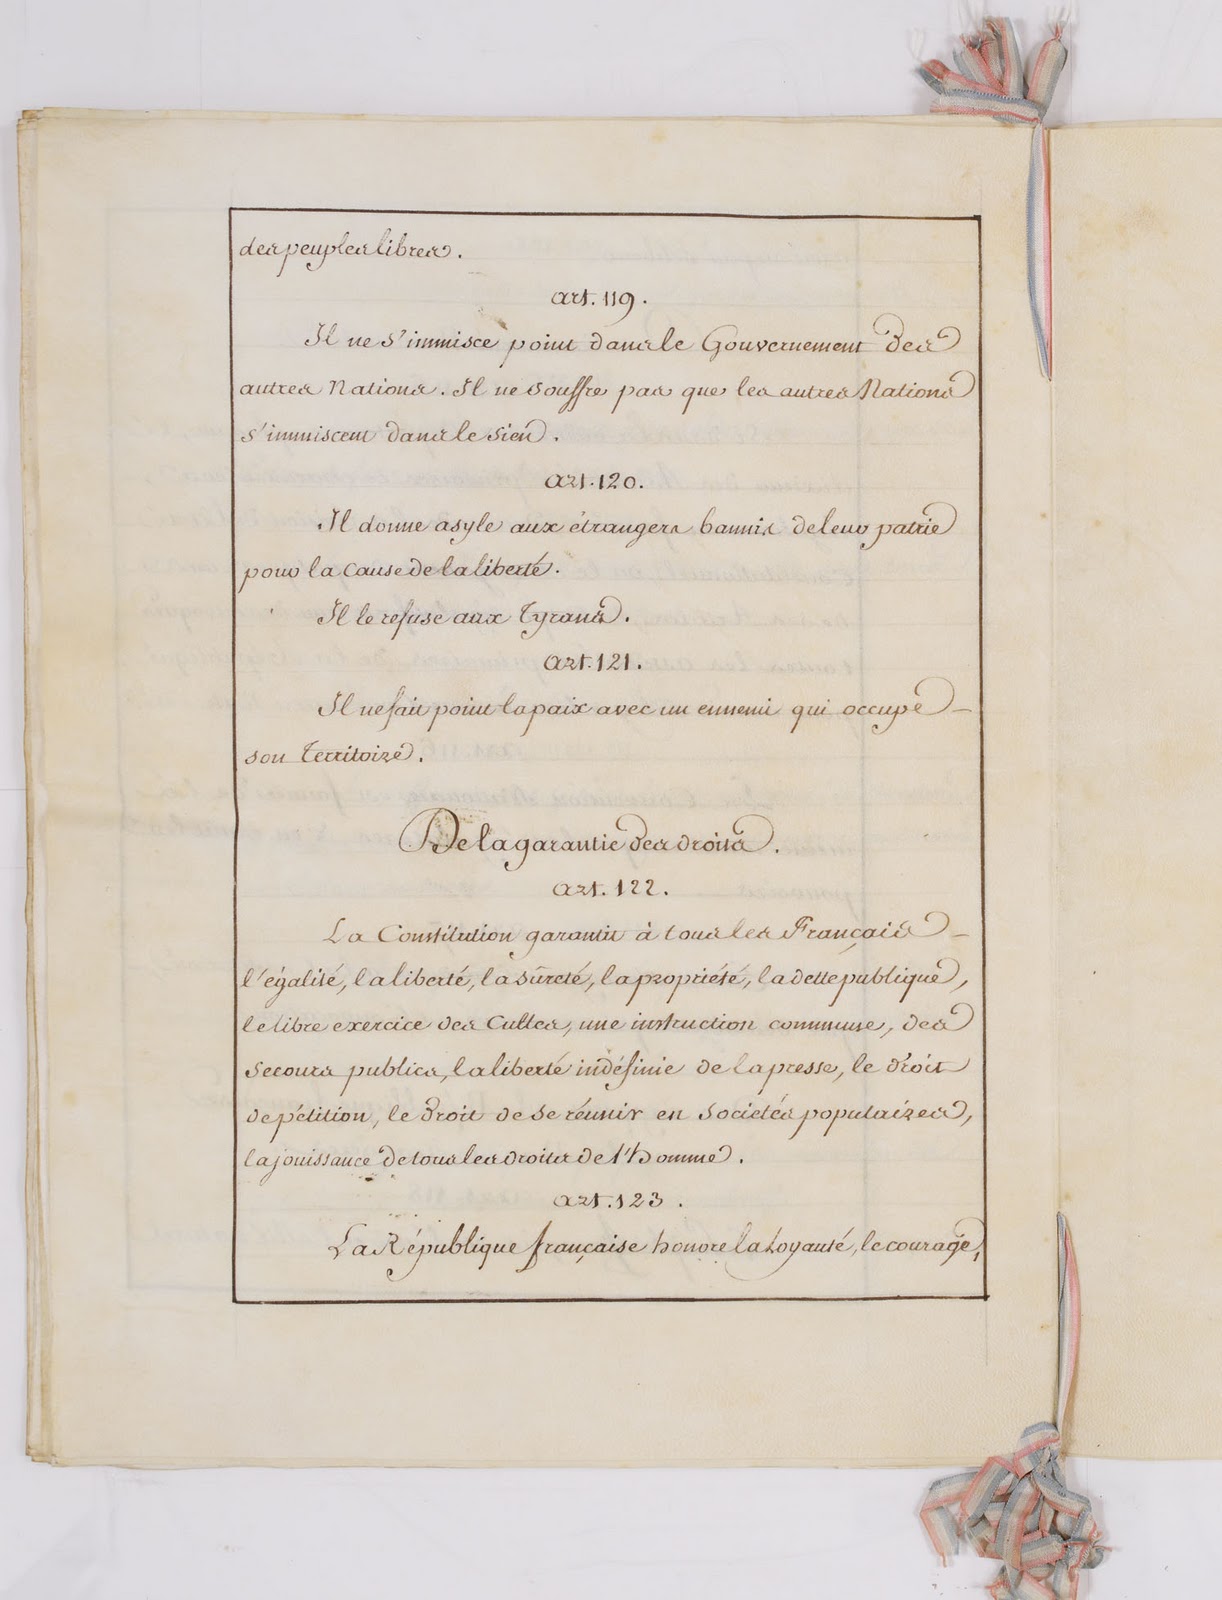 des peuples libres.
art. 119.
Il ne s'immisce point dans le Gouvernement des
autres Nations. Il ne souffre pas que les autres Nations
s'immiscent dans le sien.
art. 120.
Il donne asyle aux étrangers bannis de leur patrie
pour la cause de la liberté.
Il le refuse aux Tyrans.
art. 121.
Il ne fait point la paix avec un ennemi qui occupe
son Territoire.
De la garantie des droits.
art. 122.
La Constitution garantit à tous les Français
l'égalité, la liberté, la sûreté, la propriété, la dette publique,
le libre exercice des Cultes, une instruction commune, des
secours publics, la liberté indéfinie de la presse, le droit
de pétition, le droit de se réunir en societés populaires,
la jouissance de tous les droits de l'homme.
art. 123.
La République française honore la Loyauté, le courage,